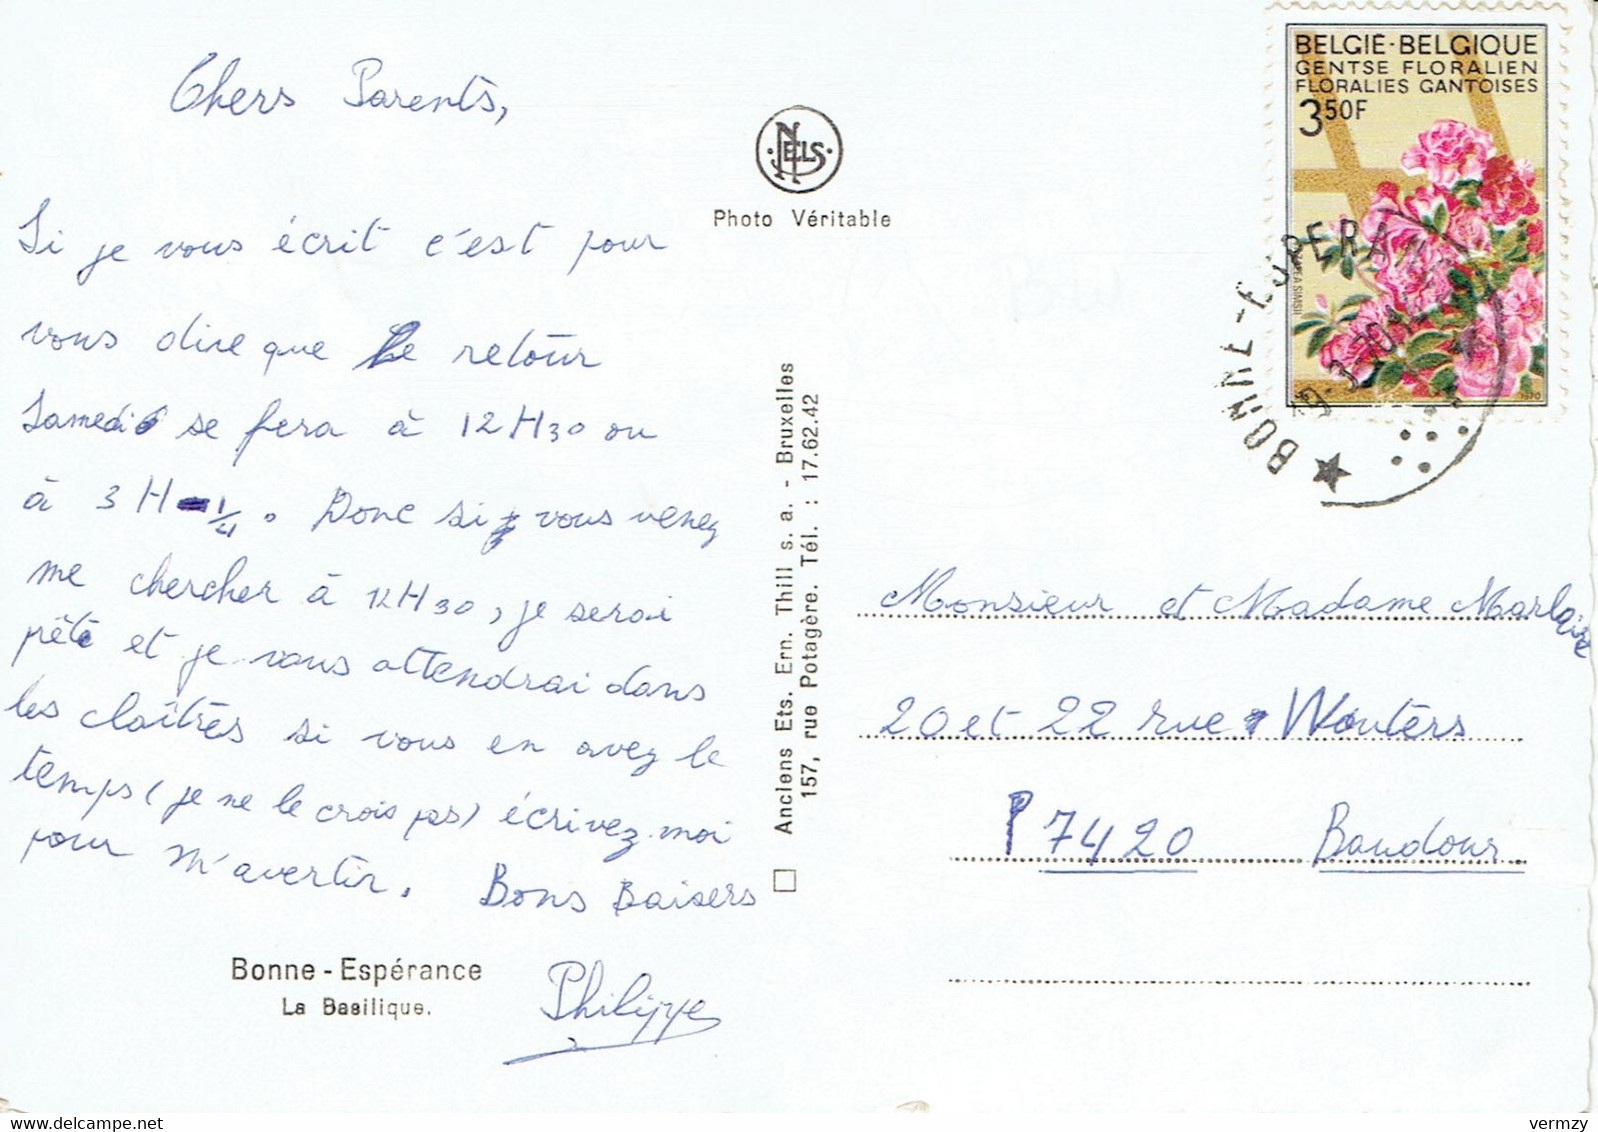 Chers Parents,
Si je vous écrit c'est pour
vous dire que le retour
Samedi se fera à 12H30 ou
à 3 H 1/4. Donc si vous venez
me chercher à 12H30, je serai
prêt et je vous attendrai dans
les cloîtres si vous en avez le
temps (je ne le crois pas) écrivez-moi
pour m'avertir. Bons Baisers
Philippe
Bonne-Espérance
La Basilique.
NELS
Photo Véritable
Anciens Ets. Ern. Thill s. a. - Bruxelles
157, rue Potagère. Tél. : 17.62.42
BELGIË-BELGIQUE
GENTSE FLORALIEN
FLORALIES GANTOISES
3,50F
1970
BONNE-ESPERAN
Monsieur et Madame Marlaire
20 et 22 rue Wouters
P 7420 Baudour
vermzy